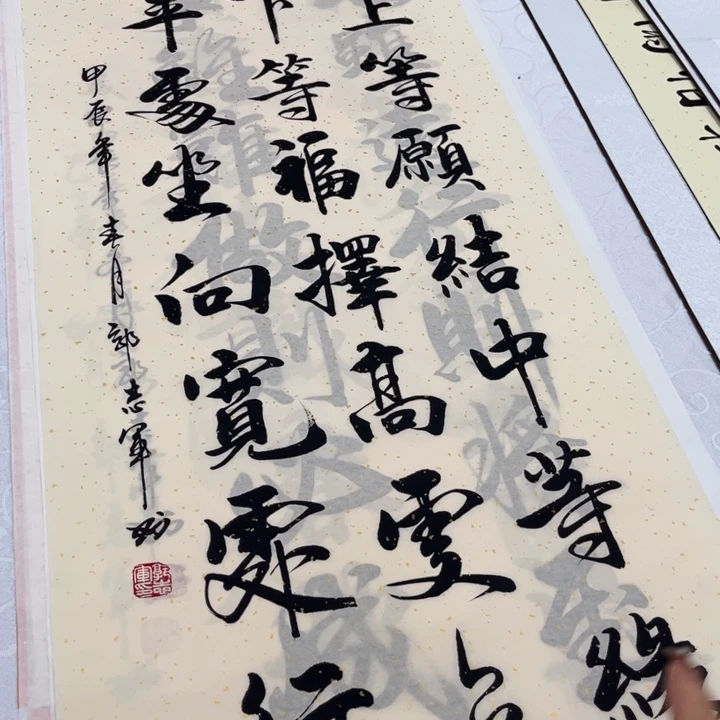 上等願結中等緣
下等福擇高處立
平處坐向寬處行
甲辰年春月郭志軍书